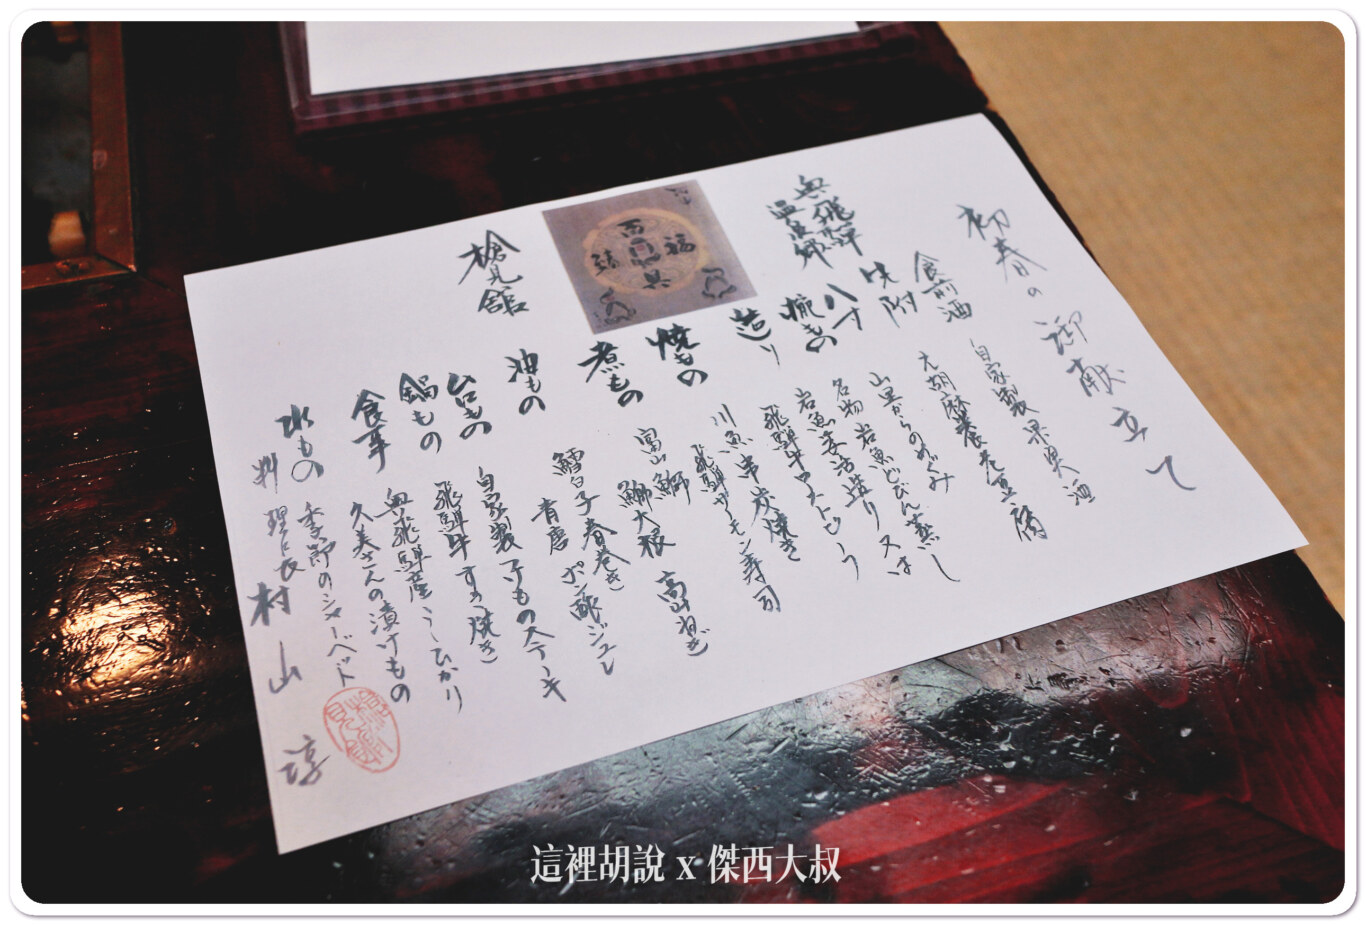 初春の御献立て
食前酒 自家製果実酒
先附 大胡麻養老豆腐
八寸 山里からのめぐみ
椀もの 名物岩魚どびん蒸し
造り 岩魚姿活造り又は
飛騨牛
焼もの 川魚串炭焼き
飛騨サーモン寿司
煮もの 富山鰤 鰤大根 高山ねぎ
油もの 鱈白子春巻き
青唐 ポン酢ジュレ
台もの 自家製子もちのステーキ
鍋もの 飛騨牛すき焼き
食事 奥飛騨産こしひかり
久美さんの漬けもの
水もの 季節のシャーベット
料理長 村山 淳
奥飛騨
温泉郷
槍見館
這裡胡說 x 傑西大叔